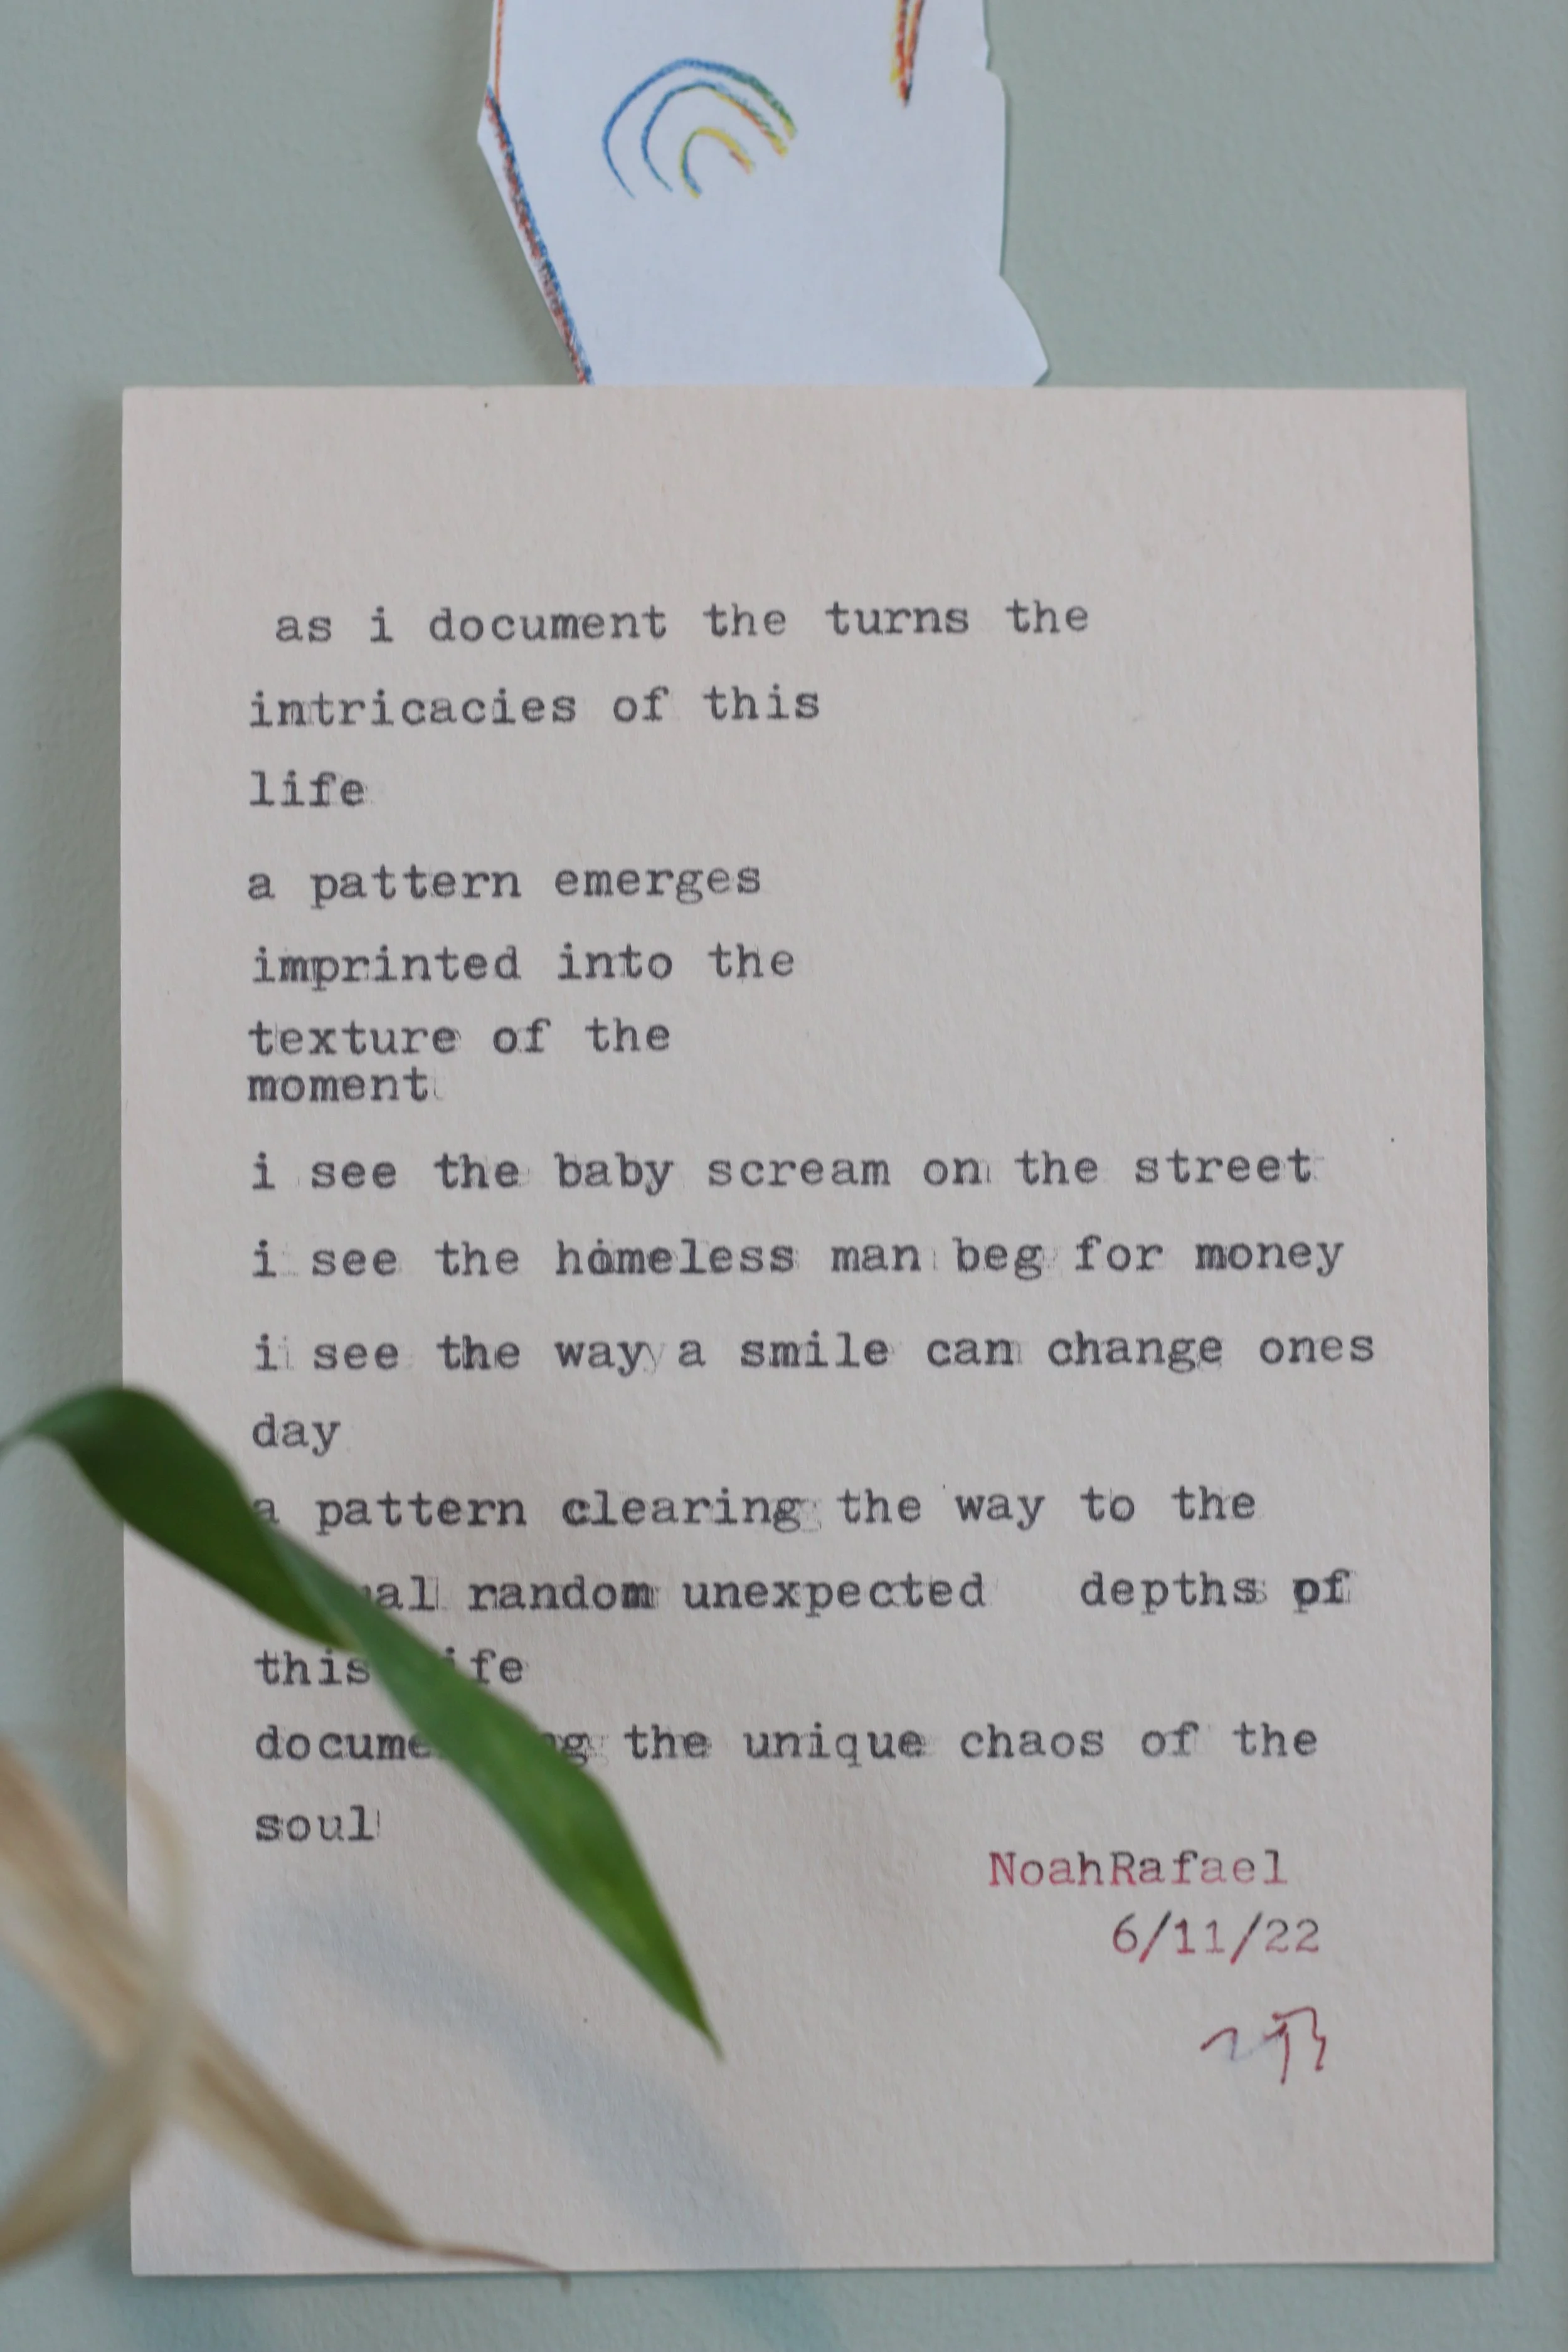 as i document the turns the
intricacies of this
life
a pattern emerges
imprinted into the
texture of the
moment
i see the baby scream on the street
i see the homeless man beg for money
i see the way a smile can change ones
day
a pattern clearing the way to the
random unexpected depths of
this life
documenting the unique chaos of the
soul
NoahRafael
6/11/22